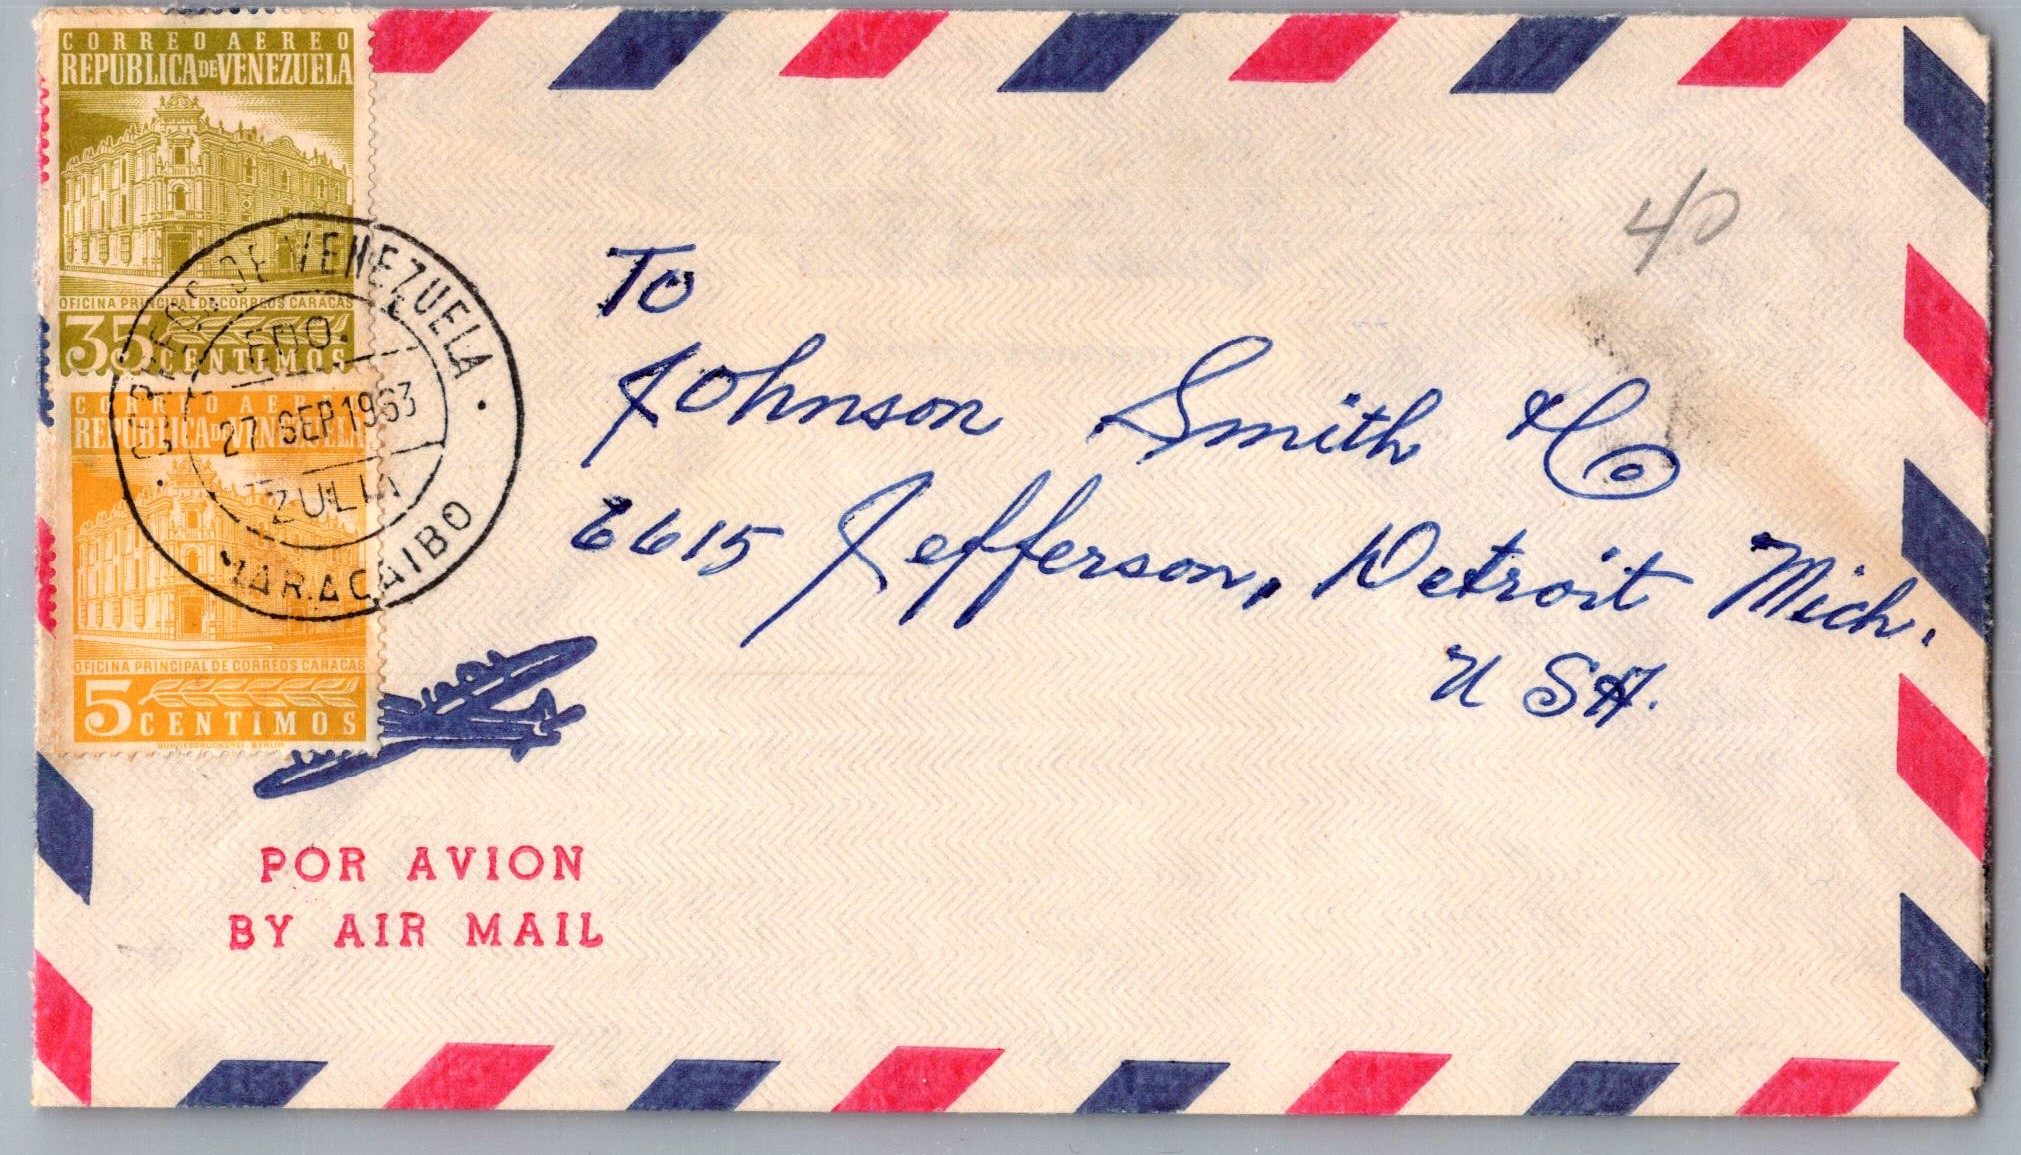 CORREO AEREO
REPUBLICA DE VENEZUELA
OFICINA PRINCIPAL DE CORREOS CARACAS
35 CENTIMOS
CORREO AEREO
REPUBLICA DE VENEZUELA
OFICINA PRINCIPAL DE CORREOS CARACAS
5 CENTIMOS
BUNDESDRUCKEREI BERLIN
CORREOS DE VENEZUELA
EDO.
27 SEP 1963
ZULIA
MARACAIBO
40
To
Johnson Smith Co
6615 Jefferson, Detroit Mich.
USA.
POR AVION
BY AIR MAIL